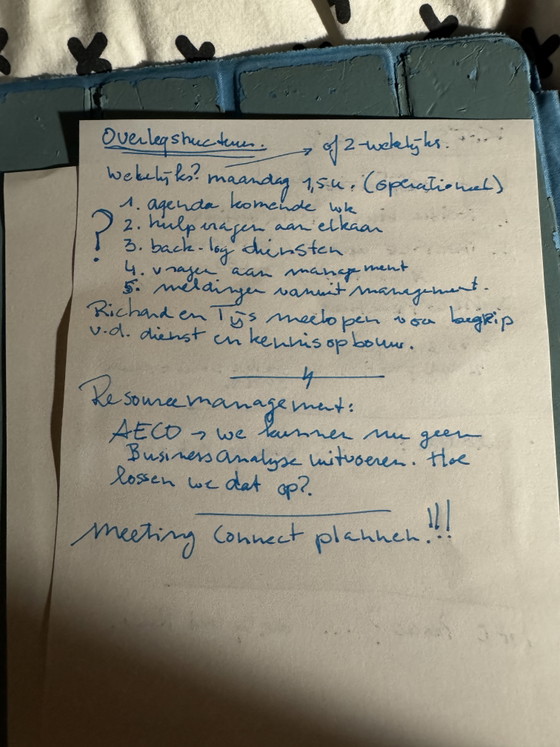 Overlegstructuur.
of 2-wekelijks.
Wekelijks? maandag 1,5u. (operationeel)
1. agenda komende wk
2. hulp vragen aan elkaar
3. back-log diensten
4. vragen aan management
5. meldingen vanuit management.
?
Richard en Tijs meelopen voor begrip
v.d. dienst en kennisopbouw.
Resourcemanagement:
AECO → we kunnen nu geen
Business Analyse uitvoeren. Hoe
lossen we dat op?
Meeting Connect plannen!!!